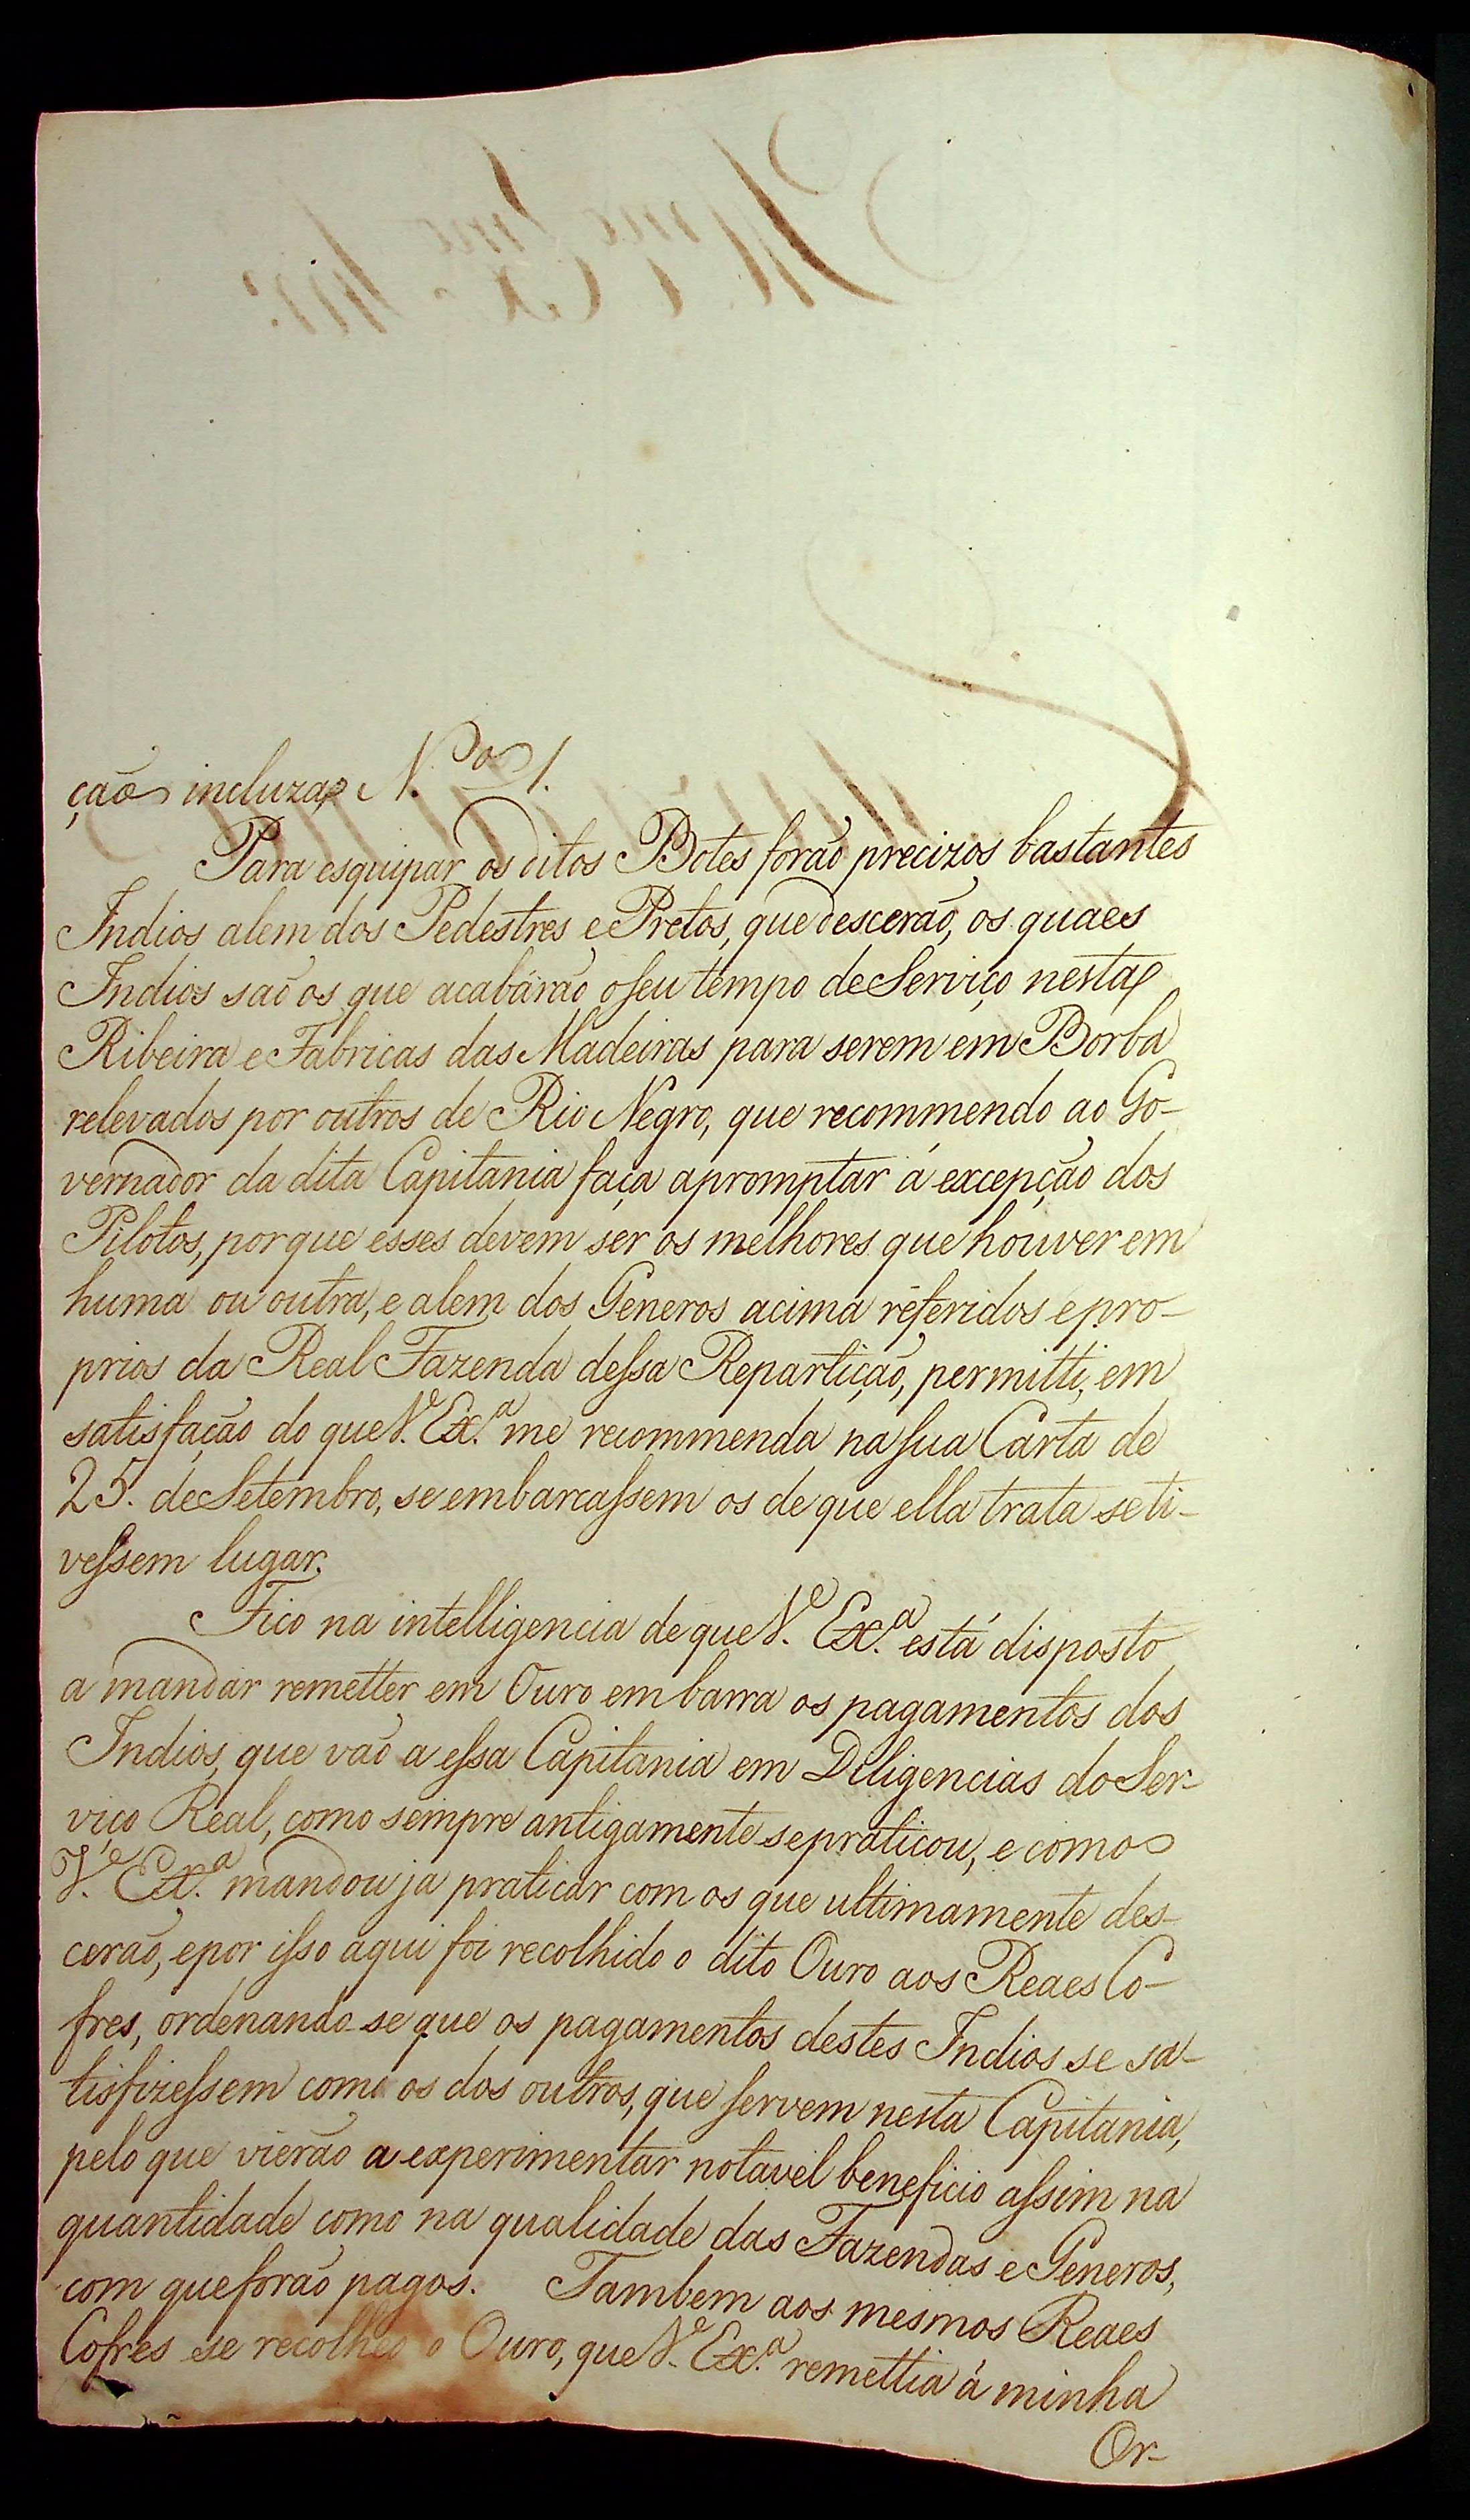 ção incluza N.º 1.
Para esquipar os ditos Botes forão precizos bastantes
Indios alem dos Pedestres e Pretos, que descerão, os quaes
Indios saõ os que acabárão o seu tempo de Serviço nesta
Ribeira e Fabricas das Madeiras para serem em Borba
relevados por outros de Rio Negro, que recommendo ao Go-
vernador da dita Capitania faça apromptar á excepção dos
Pilotos, porque esses devem ser os melhores que houver em
huma ou outra, e alem dos Generos acima referidos e pro-
prios da Real Fazenda deſsa Repartição, permitti, em
satisfação do que V. Ex.ª me recommenda na ſua Carta de
25. de Setembro, se embarcaſsem os de que ella trata se ti-
veſsem lugar.
Fico na intelligencia de que V. Ex.ª está disposto
a mandar remetter em Ouro em barra os pagamentos dos
Indios, que vaõ a eſsa Capitania em Diligencias do Ser-
viço Real, como sempre antigamente se praticou, e como
V. Ex.ª mandou ja praticar com os que ultimamente des-
cerão, e por iſso aqui foi recolhido o dito Ouro aos Reaes Co-
fres, ordenando-se que os pagamentos destes Indios se sa-
tisfizeſsem como os dos outros, que ſervem nesta Capitania,
pelo que vierão a experimentar notavel beneficio aſsim na
quantidade como na qualidade das Fazendas e Generos,
com que forão pagos. Tambem aos mesmos Reaes
Cofres se recolheo o Ouro, que V. Ex.ª remettia á minha
Or-